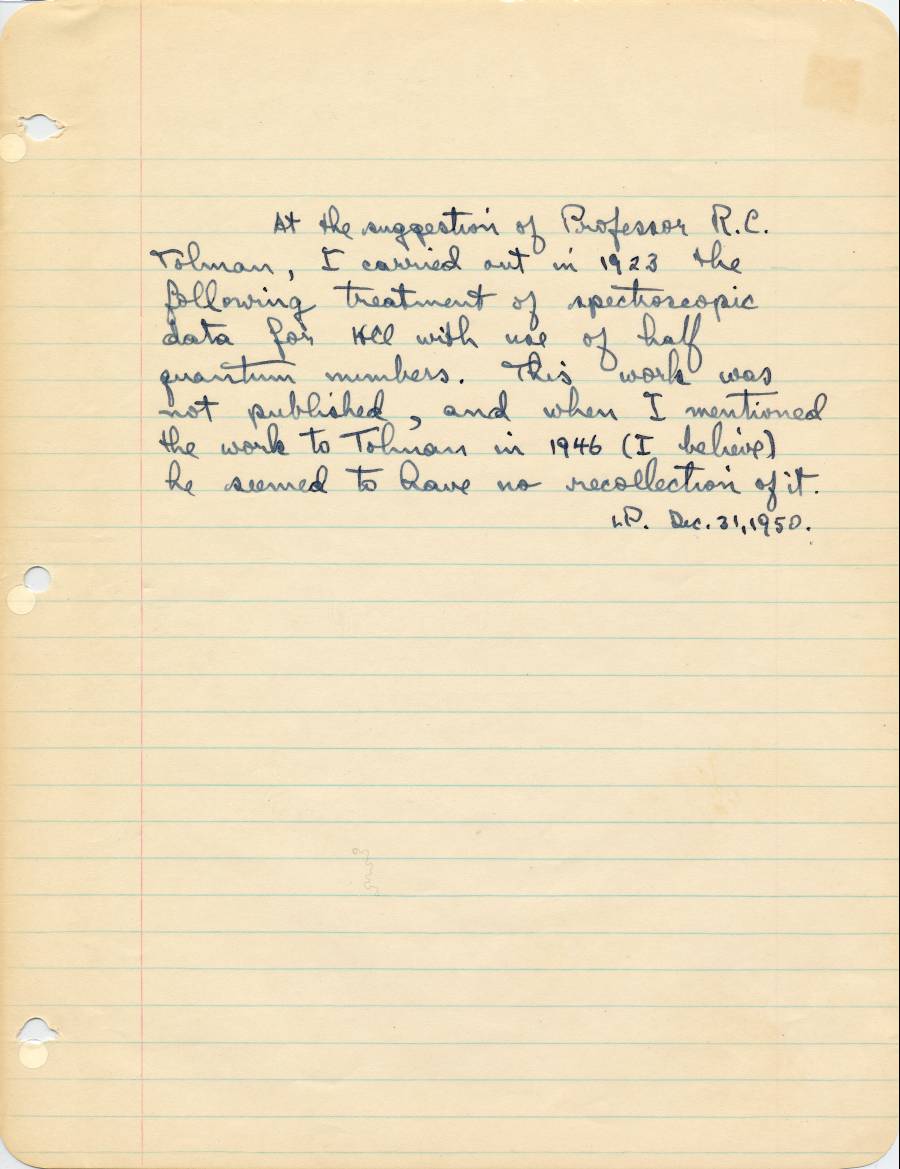 At the suggestion of Professor R.C.
Tolman, I carried out in 1923 the
following treatment of spectroscopic
data for HCl with use of half
quantum numbers. This work was
not published, and when I mentioned
the work to Tolman in 1946 (I believe)
he seemed to have no recollection of it.
LP. Dec. 31, 1950.